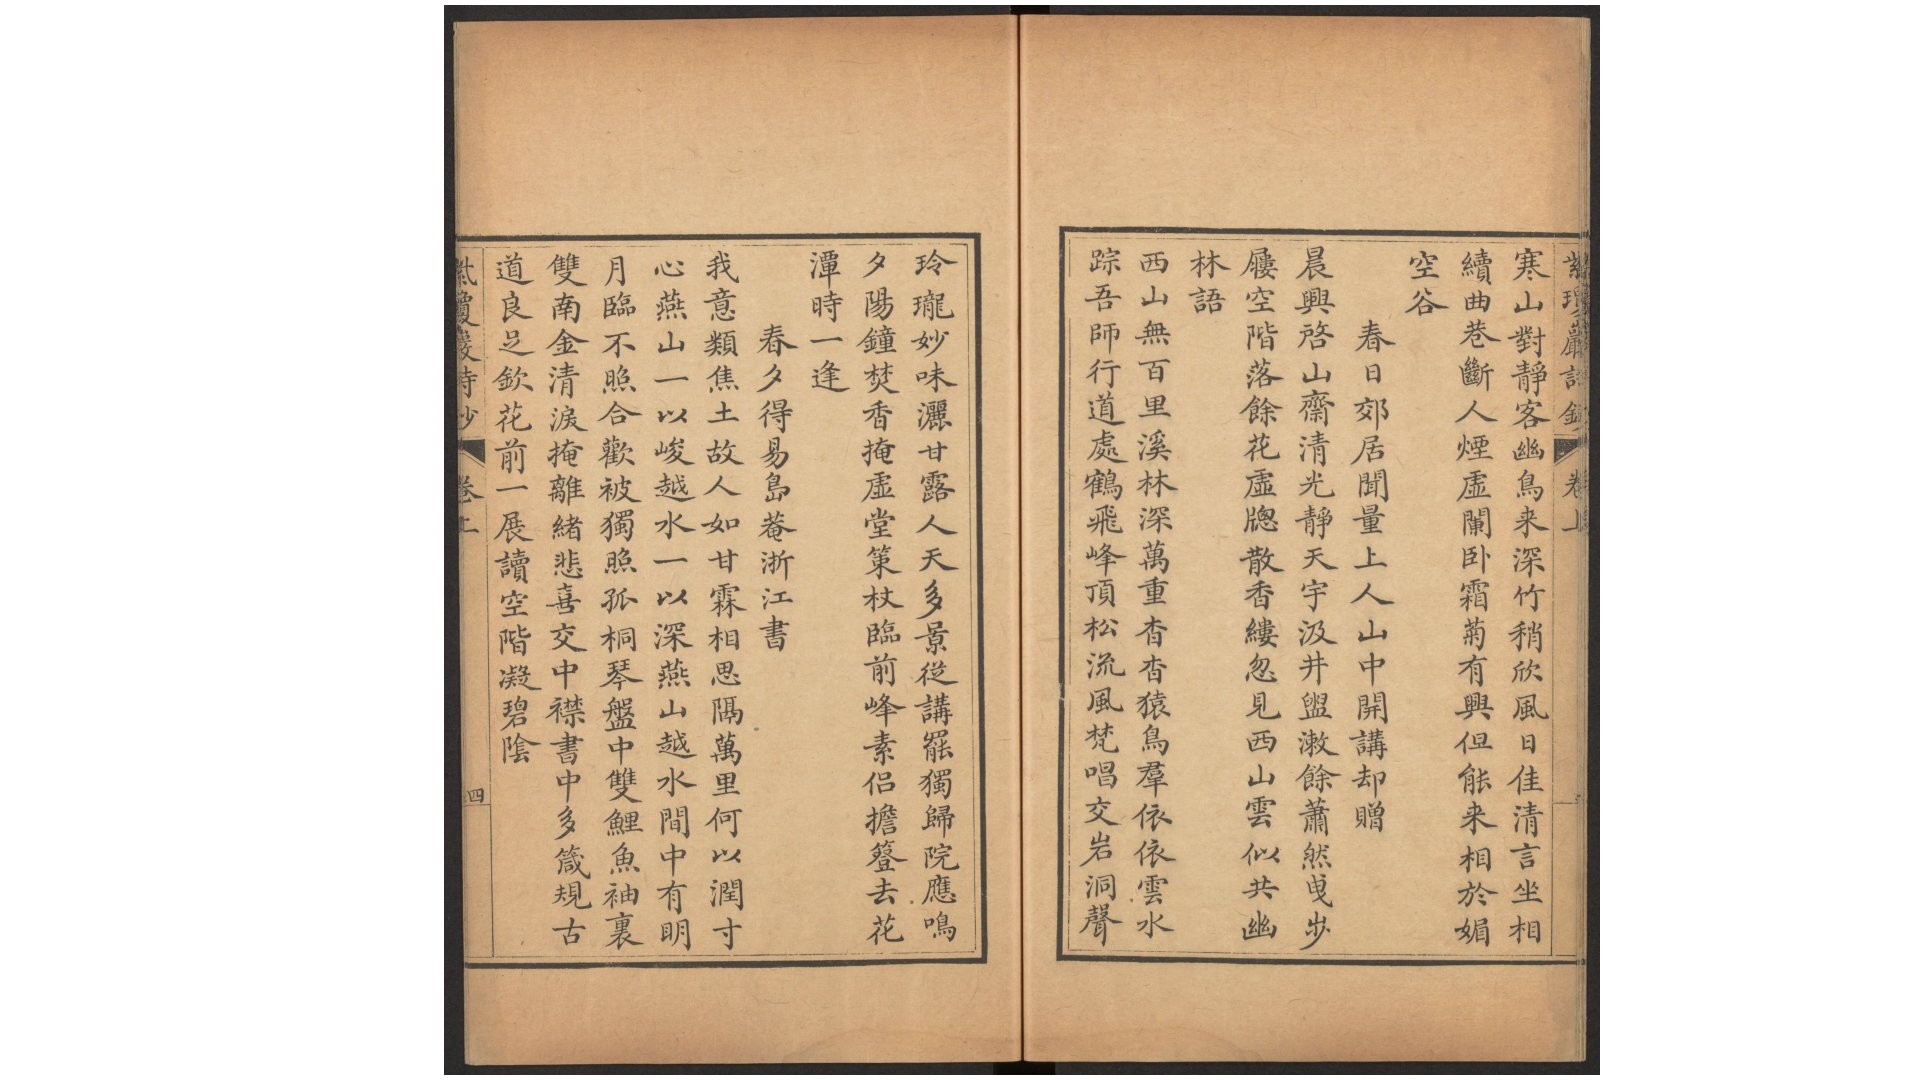 紫瓊巖詩鈔 卷上
寒山對靜客幽鳥来深竹稍欣風日佳清言坐相
續曲巷斷人煙虛闌卧霜菊有興但能来相於媚
空谷
春日郊居聞量上人山中開講却贈
晨興啓山齋清光靜天宇汲井盥漱餘蕭然曳步
屧空階落餘花虛牕散香縷忽見西山雲似共幽
林語
西山無百里溪林深萬重杳杳猿鳥羣依依雲水
踪吾師行道處鶴飛峰頂松流風梵唱交岩洞聲
玲瓏妙味灑甘露人天多景從講罷獨歸院應鳴
夕陽鐘焚香掩虛堂策杖臨前峰素侣擔簦去花
潭時一逢
春夕得易島菴浙江書
我意類焦土故人如甘霖相思隔萬里何以潤寸
心燕山一以峻越水一以深燕山越水間中有明
月臨不照合歡被獨照孤桐琴盤中雙鯉魚袖裏
雙南金清淚掩離緒悲喜交中襟書中多箴規古
道良足欽花前一展讀空階凝碧陰
紫瓊巖詩鈔 卷上 四